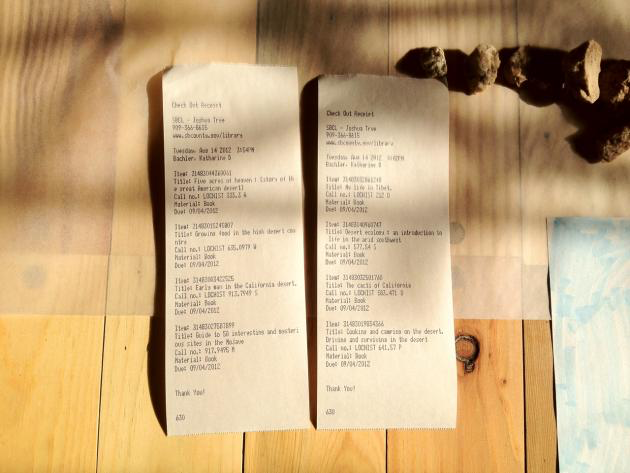 Check Out Receipt
SBCL - Joshua Tree
909-366-8615
www.sbcounty.gov/library
Tuesday, Aug 14 2012 3:54PM
Bachler, Katharine D
Item: 31483044260061
Title: Five acres of heaven : (story of th
e great American desert)
Call no.: LOCHIST 333.3 A
Material: Book
Due: 09/04/2012
Title: Growing food in the high desert cou
ntry
Call no.: LOCHIST 635.0979 W
Material: Book
Due: 09/04/2012
Item: 31483003422525
Title: Early man in the California desert.
Call no.: LOCHIST 913.7949 S
Material: Book
Due: 09/04/2012
Item: 31483027587899
Title: Guide to 50 interesting and mysteri
ous sites in the Mojave
Call no.: 917.9495 M
Material: Book
Due: 09/04/2012
Thank You!
630
Check Out Receipt
SBCL - Joshua Tree
909-366-8615
www.sbcounty.gov/library
Tuesday, Aug 14 2012
Bachler, Katharine D
Title: My life in Tibet.
Call no.: LOCHIST 212 D
Material: Book
Due: 09/04/2012
Item: 31483040960747
Title: Desert ecology : an introduction to
life in the arid southwest
Call no.: 577.54 S
Material: Book
Due: 09/04/2012
Item: 31483032501760
Title: The cacti of California
Call no.: LOCHIST 583.471 D
Material: Book
Due: 09/04/2012
Item: 31483019834366
Title: Cooking and camping on the desert.
Driving and surviving in the desert
Call no.: LOCHIST 641.57 P
Material: Book
Due: 09/04/2012
Thank You!
630